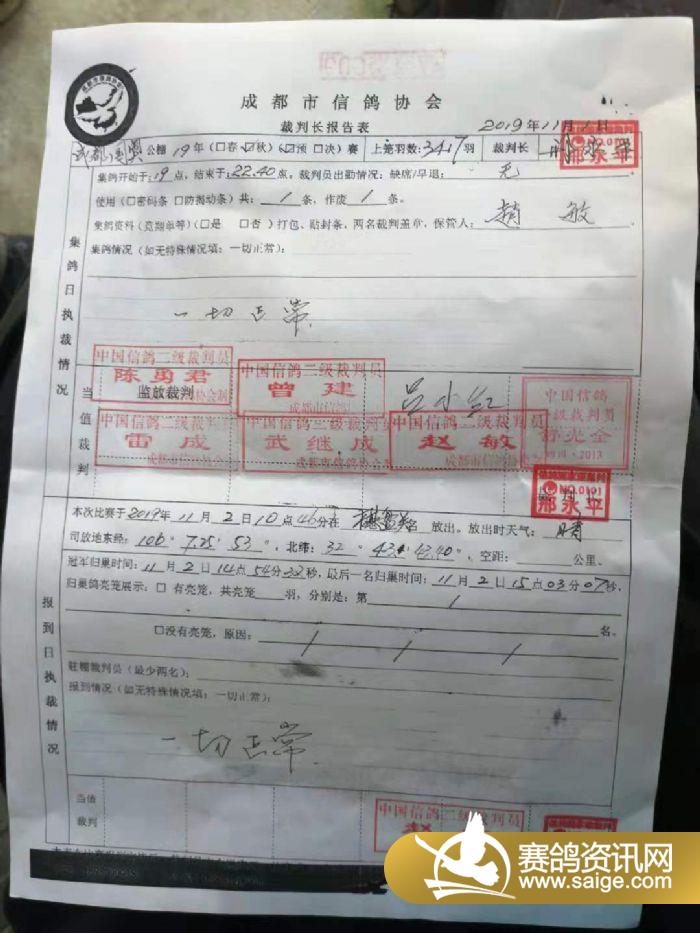 成都市信鸽协会
裁判长报告表
2019年11月1日
公棚 19年(□春☑秋)(☑预□决)赛 上笼羽数:3417羽 裁判长
邢永平
集鸽开始于:19点,结束于:22.40点。裁判员出勤情况:缺席/早退: 无
使用(□密码条 □防揭动条)共: 1 条、作废 1 条。
集鸽资料(竞翔单等)(□是 □否)打包、贴封条,两名裁判盖章,保管人: 赵敏
集鸽情况(如无特殊情况填:一切正常):
集鸽日执裁情况
一切正常
当值裁判
中国信鸽二级裁判员
陈勇君
监放裁判
中国信鸽二级裁判员
曾建
成都市信鸽
吕小红
中国信鸽
级裁判员
舒光全
四川·2013
中国信鸽二级裁判
雷成
成都市信鸽协会
中国信鸽三级裁判员
武继成
成都市信鸽协会
中国信鸽二级裁判员
赵敏
成都市信鸽协会
NO.0101
邢永平
本次比赛于2019年11月2日10点46分在 放出。放出时天气: 晴
司放地东经: 106° 7.25′ 53″,北纬: 32° 43′ 43.40″,空距: 公里。
冠军归巢时间: 11月2日14点54分32秒,最后一名归巢时间: 11月2日15点03分07秒。
归巢鸽亮笼展示:□ 有亮笼,共亮笼 羽,分别是:第 / 名。
□没有亮笼,原因: / / /
报到日执裁情况
驻棚裁判员(最少两名):
报到情况(如无特殊情况填:一切正常):
一切正常
当值
裁判
中国信鸽二级裁判员
赵
赛鸽资讯网
www.saige.com